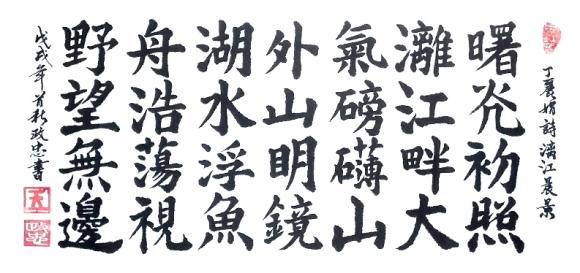 丁麗娟詩漓江晨景
曙光初照
灕江畔大
氣磅礴山
外山明鏡
湖水浮魚
舟浩蕩視
野望無邊
戊戌年首秋政忠書